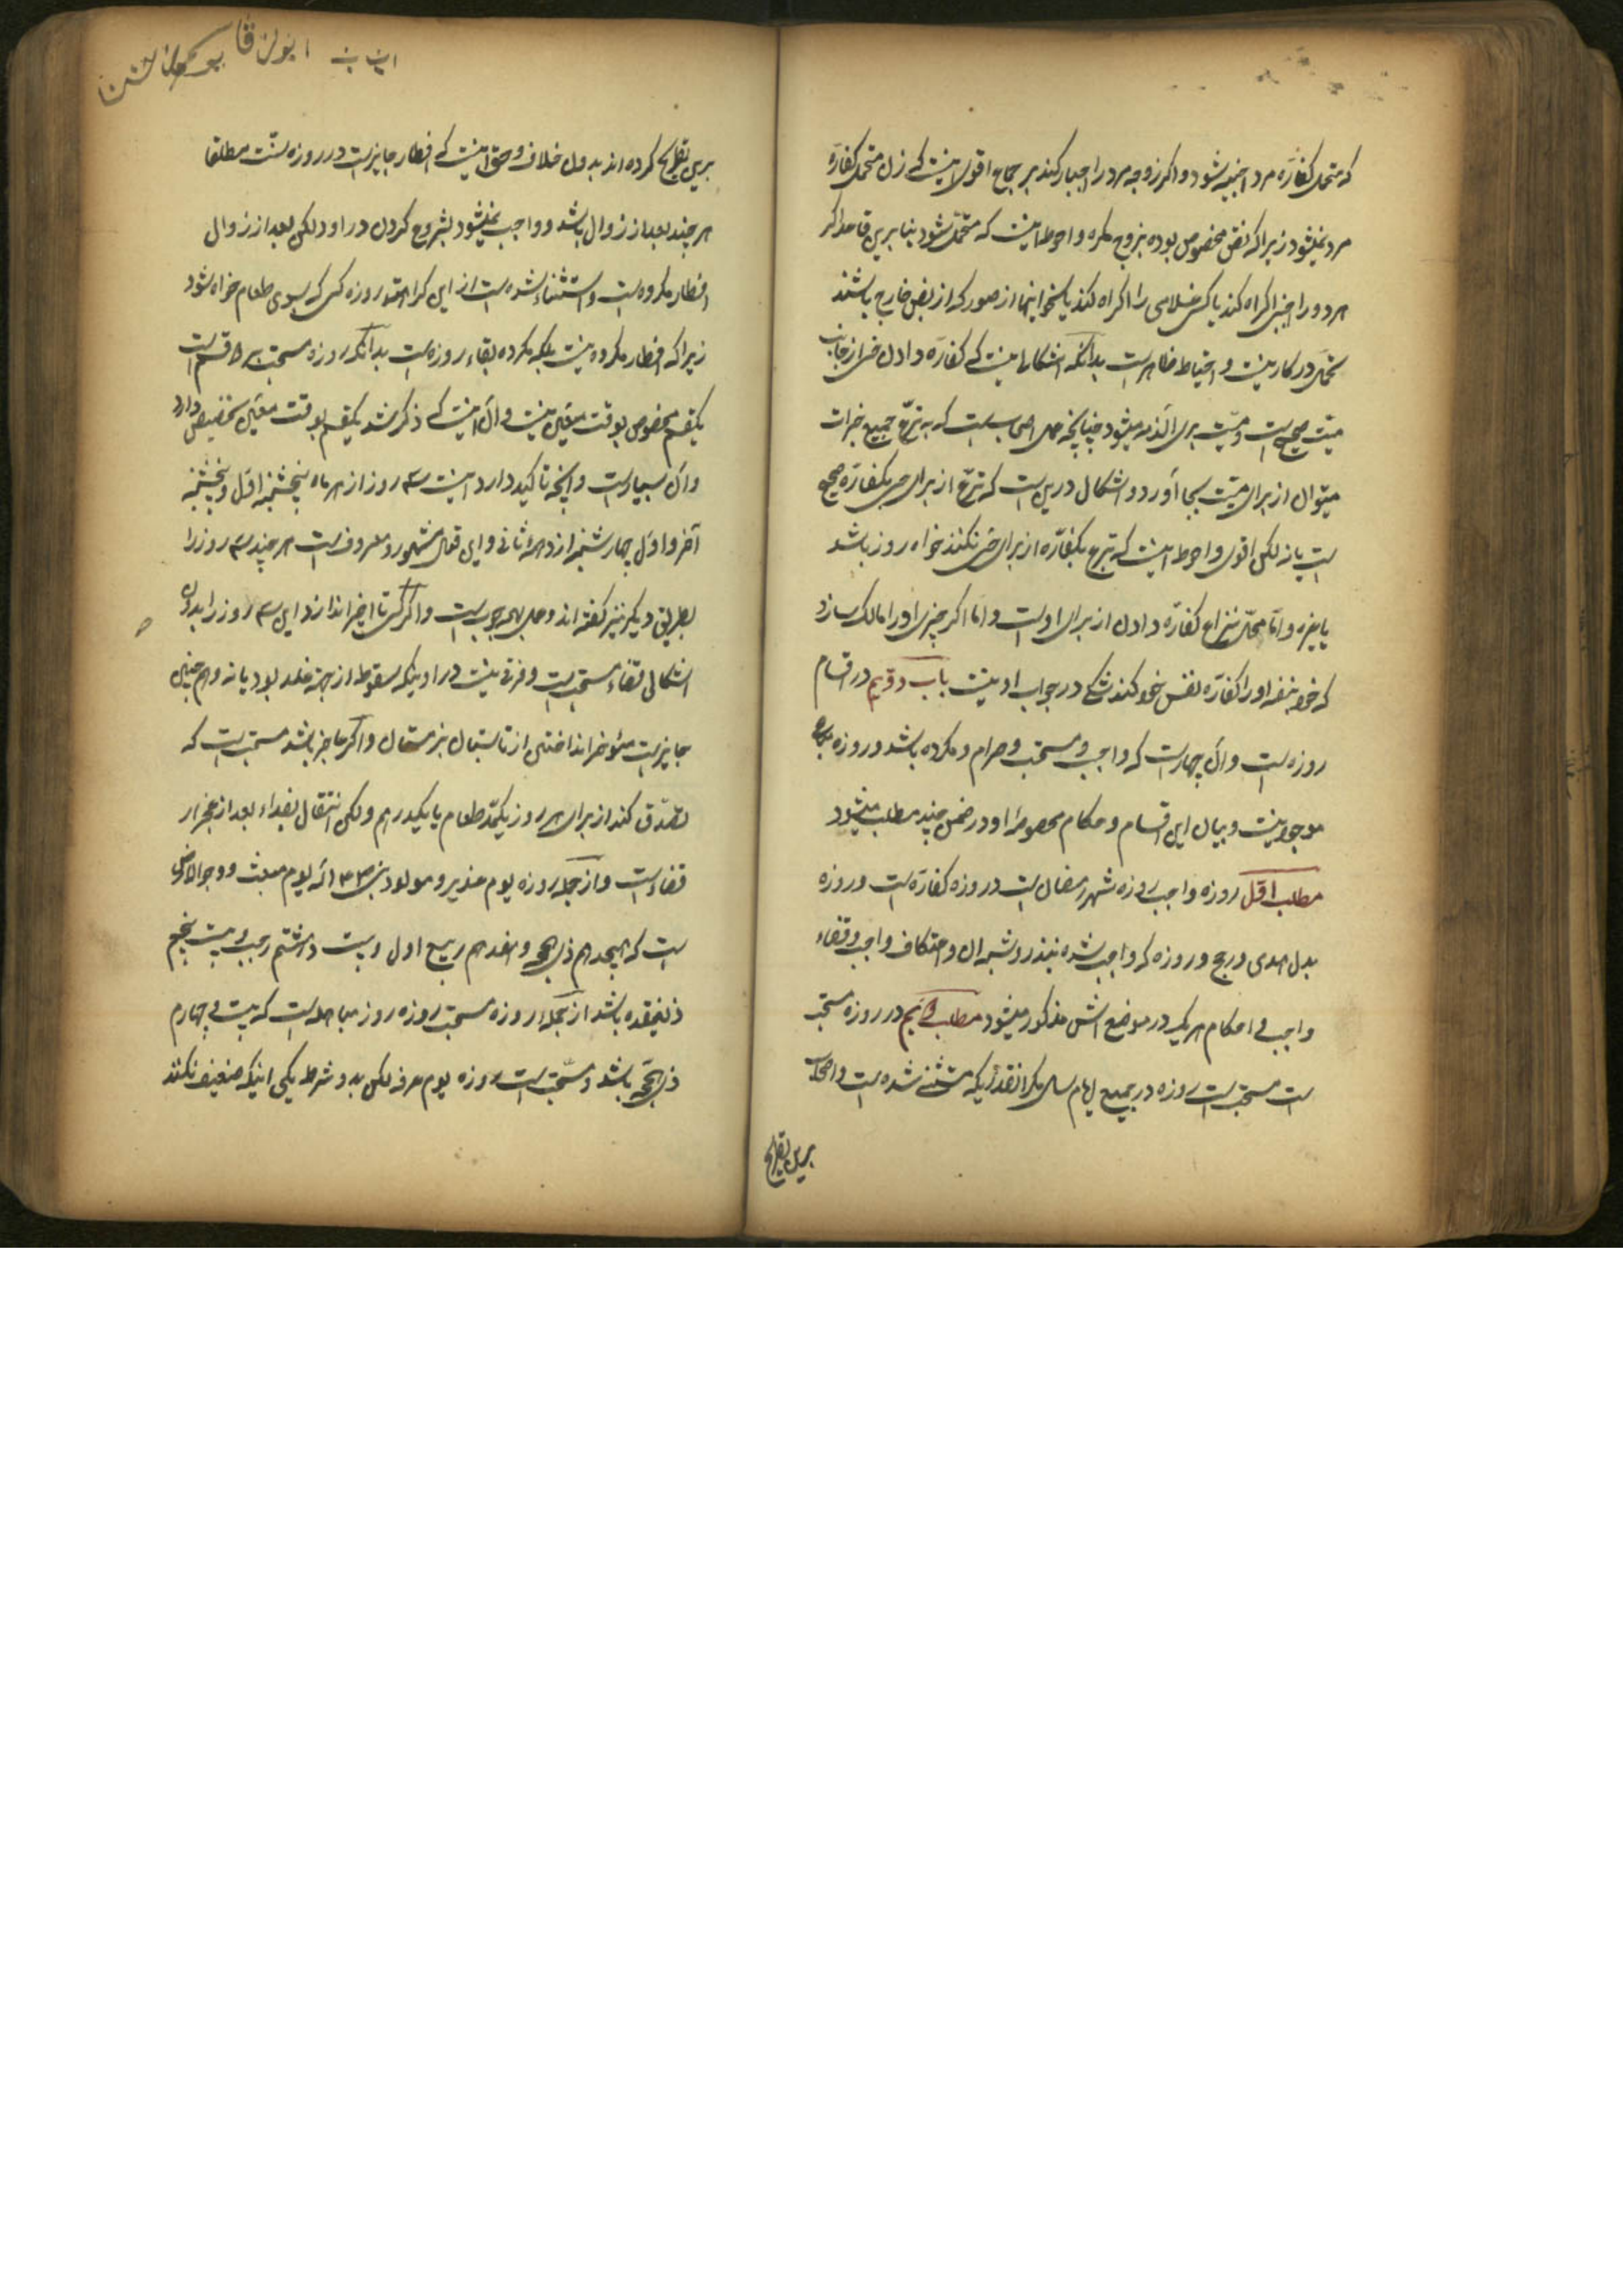 که متحمل کفاره مرد اجنبیه شود و اگر زوجه مرد را اجبار کند بر جماع اقوی اینست که زن متحمل کفاره
مرد نمیشود زیرا که نص مخصوص بوده بزوج مکره و احوط اینست که متحمل شود بنا برین قاعده اگر
هر دو را اجنبی اکراه کند یا کسی غلامی را اکراه کند یا نحو اینها از صور که از نص خارج باشند
تحمل در کار نیست و احتیاط ظاهر است بدانکه اشکالی نیست که کفاره دادن از جانب
میت صحیح است و میت بری الذمه میشود چنانچه عمل اصحاب است که به تبرع جمیع خیرات
میتوان از برای میت بجا آورد و اشکال درین است که تبرع از برای حی بکفاره صحیح
است یا نه لکن اقوی و احوط اینست که تبرع بکفاره از برای حی نکنند خواه روزه باشد
یا غیره و اما محل نزاع کفاره دادن از برای اوست و اما اگر چیزی او را مالک سازد
که خود بنفسه او را کفاره نفس خود کند شکی در جواب او نیست باب دویم در اقسام
روزه است و آن چهار است که واجب و مستحب و حرام و مکروه باشد و روزه مباح
موجود نیست و بیان این اقسام و احکام مخصوصه او در ضمن چند مطلب میشود
مطلب اول روزه واجب روزه شهر رمضان است و روزه کفاره است و روزه
بدل هدی در حج و روزه که واجب شده بنذر و شبه آن و اعتکاف واجب و قضاء
واجب و احکام هر یک در موضع اش مذکور میشود مطلب دویم در روزه مستحب
است مستحب است روزه در جمیع ایام سال مگر آنقدریکه مستثنی شده است و اصحاب
برین تصریح
برین تصریح کرده اند بدون خلاف و حق اینست که افطار جایز است در روزه سنت مطلقا
هر چند بعد از زوال باشد و واجب نمیشود بشروع کردن در او و لکن بعد از زوال
افطار مکروه است و استثناء شده است از این کراهت روزه کسی که بسوی طعام خواه شود
زیرا که افطار مکروه نیست بلکه مکروه بقاء روزه است بدانکه روزه مستحب بر دو قسم است
یکقسم مخصوص بوقت معین نیست و آن اینست که ذکر شد یکقسم بوقت معین تخصیص دارد
و آن بسیار است و آنچه تأکید دارد اینست سه روز از هر ماه پنجشنبه اول و پنجشنبه
آخر و اول چهارشنبه از دهه ثانی و این قول مشهور و معروف است هر چند سه روز را
بطریق دیگر نیز گفته اند و عمل بهمه خوب است و اگر کسی تأخیر اندازد این سه روز را بدون
اشکال قضاء مستحب است و فرقی نیست در اوینکه سقوط از جهة عذر بود یا نه و هم چنین
جایز است مؤخر انداختن از تابستان بزمستان و اگر عاجز باشد مستحب است که
تصدق کند از برای هر روز یکمد طعام یا یکدرهم و لکن انتقال بفداء بعد از عجز از
قضاء است و از جمله روزه یوم غدیر و مولود نبی و یوم مبعث و دحو الارض
است که هیجدهم ذی الحجه و هفدهم ربیع اول و بیست و هفتم رجب و بیست پنجم
ذیقعده باشد از جمله روزه مستحب روزه روز مباهله است که بیست و چهارم
ذی الحجه باشد و مستحب است روزه یوم عرفه لکن بدو شرط یکی اینکه ضعیف نکند